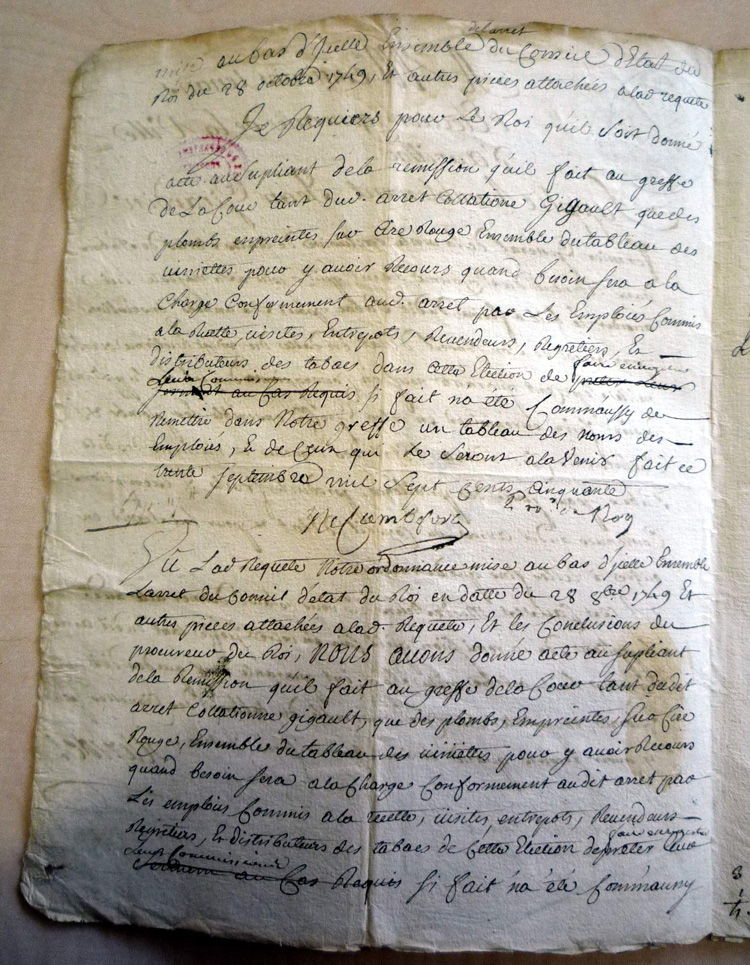 de larret
mise au bas d'jcelle Ensemble du Conseil d'Etat du
Roi du 28 octobre 1749, Et autres pieces attachées a lad. requete
Je Requiers pour Le Roi quil soit donné
acte au supliant de la remission qu'il fait au greffe
de La Cour tant dud. arret Collationné Gigault que des
plombs enpreintes sur Cire Rouge Ensemble du tableau des
viniettes pour y avoir Recours quand besoin sera a la
Charge Conformement aud. arret par Les Emploiés Commis
a la Recette, visites, Entrepots, Revendeurs, Regretiers, Et
distributeurs des tabacs dans Cette Election de faire enregistrer
leurs Commissions
au Cas Requis si fait n'a été Commaussy de
Remettre dans Notre greffe un tableau des noms des
Emploiés, Et de Ceux qui Le Seront a la Venir fait ce
trente septembre mil Sept Cents Cinquante
du Roy
Vu Lad Requete Notre ordonnance mise au bas d'jcelle Ensemble
Larret du Conseil d'état du Roi en datte du 28 8bre 1749 Et
autres pieces attachées a lad. Requete, Et les Conclusions du
procureur du Roi, NOUS avons donné acte au supliant
de la Remission qu'il fait au greffe de la Cour tant dudit
arret Collationné gigault, que des plombs, Empreintes sur Cire
Rouge, Ensemble du tableau des viniettes pour y avoir Recours
quand besoin sera a la Charge Conformement audit arret par
Les emploiés Commis a la recette, visites entrepots, Revendeurs
Regretiers, Et distributeurs des tabacs de Cette Election de faire enregistrer
leurs Commissions
au Cas Requis si fait n'a été Commaussy